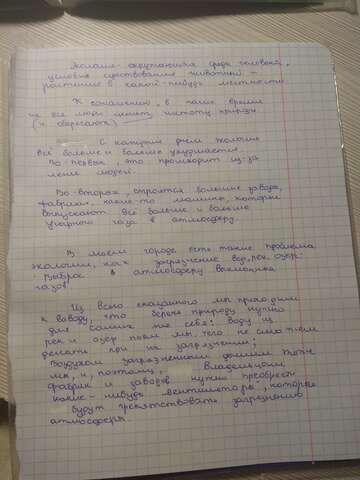 Экология - окружающая среда человека,
условия существования животный -
растение в какой-нибудь местности.
К сожалению, в наше время
не все люди ценят чистоту природы.
(и оберегают)
С каждым днем экология
все больше и больше ухудшается.
Во-первых, это происходит из-за
лени людей.
Во-вторых, строятся большие завода,
фабрики, какие-то машины, которые
выпускают все больше и больше
угарного газа в атмосферу.
В моем городе есть такие проблема
экологии, как загрязнение вод, рек, озер.
Выброс в атмосферу
газов.
Из всего сказанного мы приходим
к выводу, что беречь природу нужно
для самих же себя: воду из
рек и озер пьем мы, чего не сможем
делать при их загрязнении;
Воздухом загрязненным дышим тоже
мы, и, поэтому, Владельцам
фабрик и заводов нужно приобрести
какие-нибудь "вентиляторы", которые
будут препятствовать загрязнению
атмосферы.